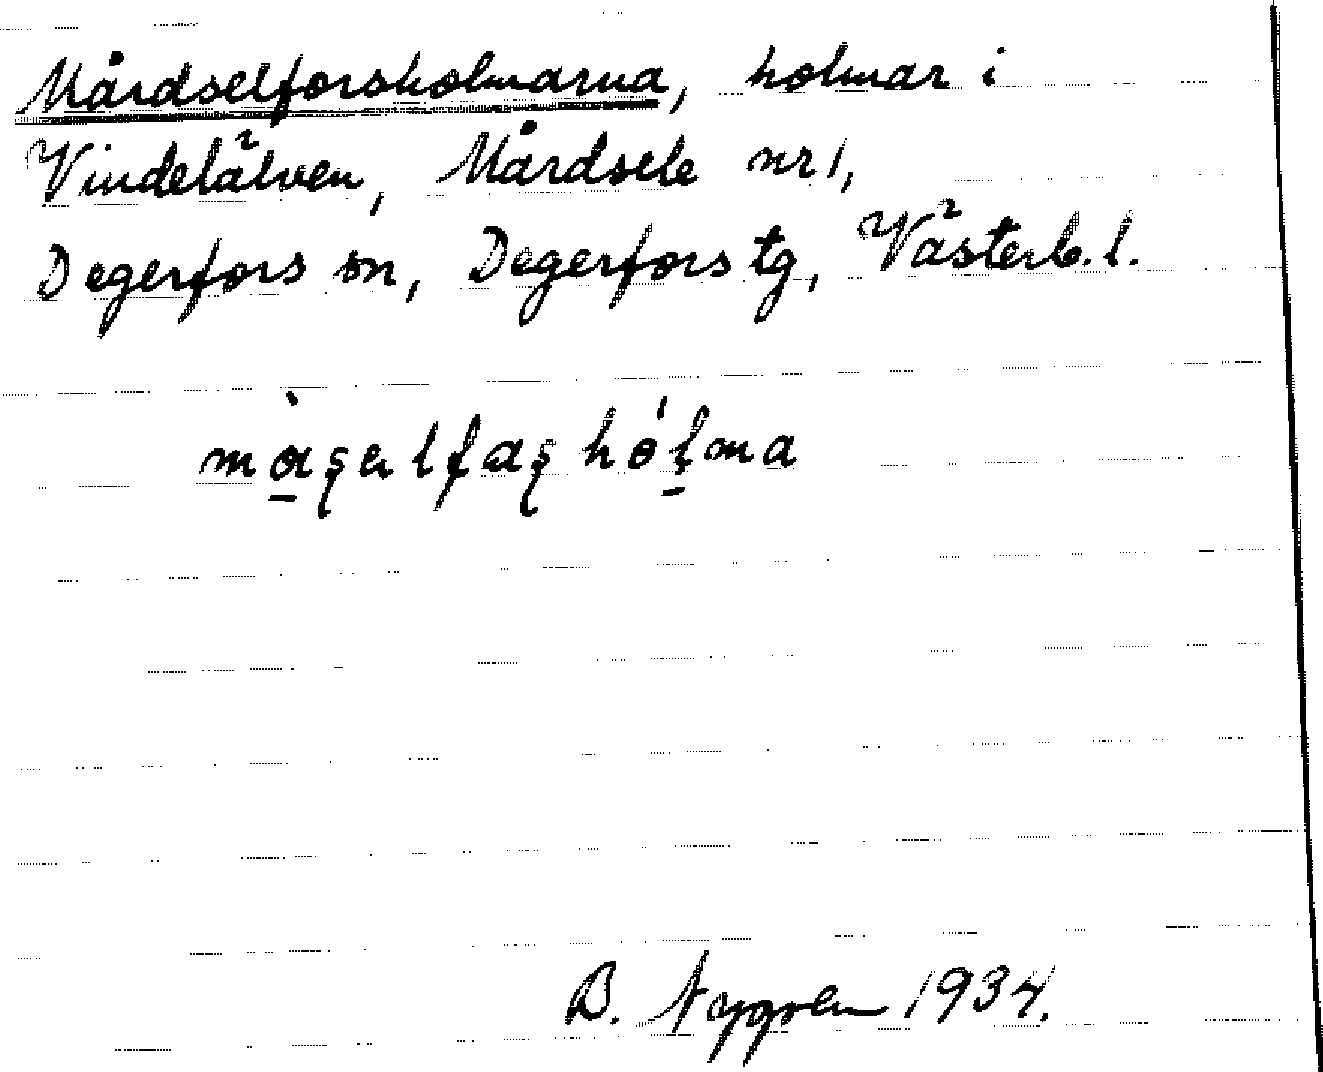 Mårdselforsholmarna, holmar i
Vindelälven, Mårdsele nr 1,
Degerfors sn, Degerfors tg, Västerb. l.
B. Nygren 1934.